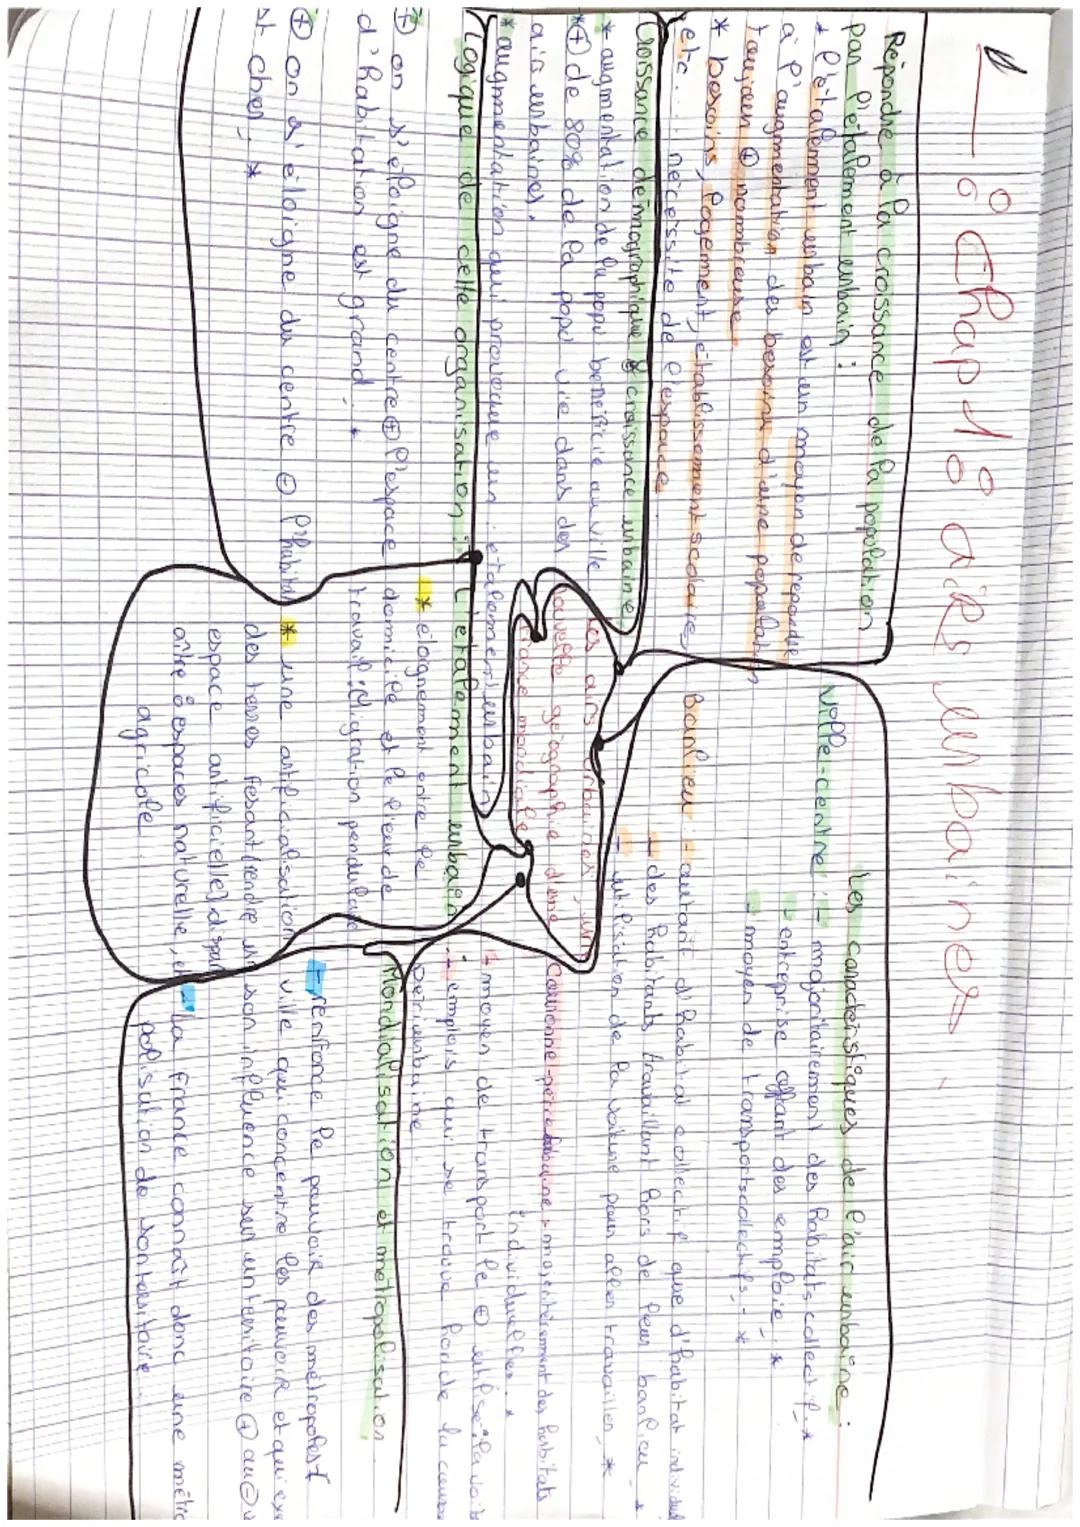 Chap 18 airs urbaines.
Répondre à la croissance de la population
par l'étalement urbain :
* l'étalement urbain est un moyen de repondre
à l'augmentation des besoins d'une population
toujours ⊕ nombreuse.
* besoins, logement, établissement scolaires,
etc.... nécessite de l'espace.
Croissance démographique & croissance urbaine
* augmentation de la popu beneficie au ville
*⊕ de 80% de la popu vie dans des
airs urbaines.
* augmentation qui provoque un étalement urbain
Logique de cette organisation :
⊕ on s'éloigne du centre ⊕ l'espace
d'habitation est grand. *
⊕ on s'éloigne du centre ⊖ l'habitat
st cher. *
Les airs urbaines, un
nouvelle géographie d'une
France mondialisée
Les caractéristiques de l'air urbaine :
Ville-centre : - majoritairement des habitats collectif. *
- entreprise offrant des emploie. *
- moyen de transports collectifs. *
Banlieu : - autant d'habitat collectif que d'habitat individuel
- des habitants travaillant hors de leur banlieu *
- utilisation de la voiture pour aller travailler, *
Couronne-périurbaine - majoritairement des habitats
individuelles. *
- moyen de transport le ⊕ utilisé : la voit
- emplois qui se trouve hors de la couron
périurbaine
L'étalement urbain
* éloignement entre le
domicile et le lieu de
travail : Migration pendulaire
* une artificialisation
des terres fesant (rendre un
espace artificielle) dispar
aître d'espaces naturelle, et
agricole.
Mondialisation et métropolisation
- renforce le pouvoir des métropoles (
ville qui concentre les pouvoir et qui exe
son influence sur un territoire ⊕ ou ⊖ v
- La France connaît donc une métro
polisation de son territoire.